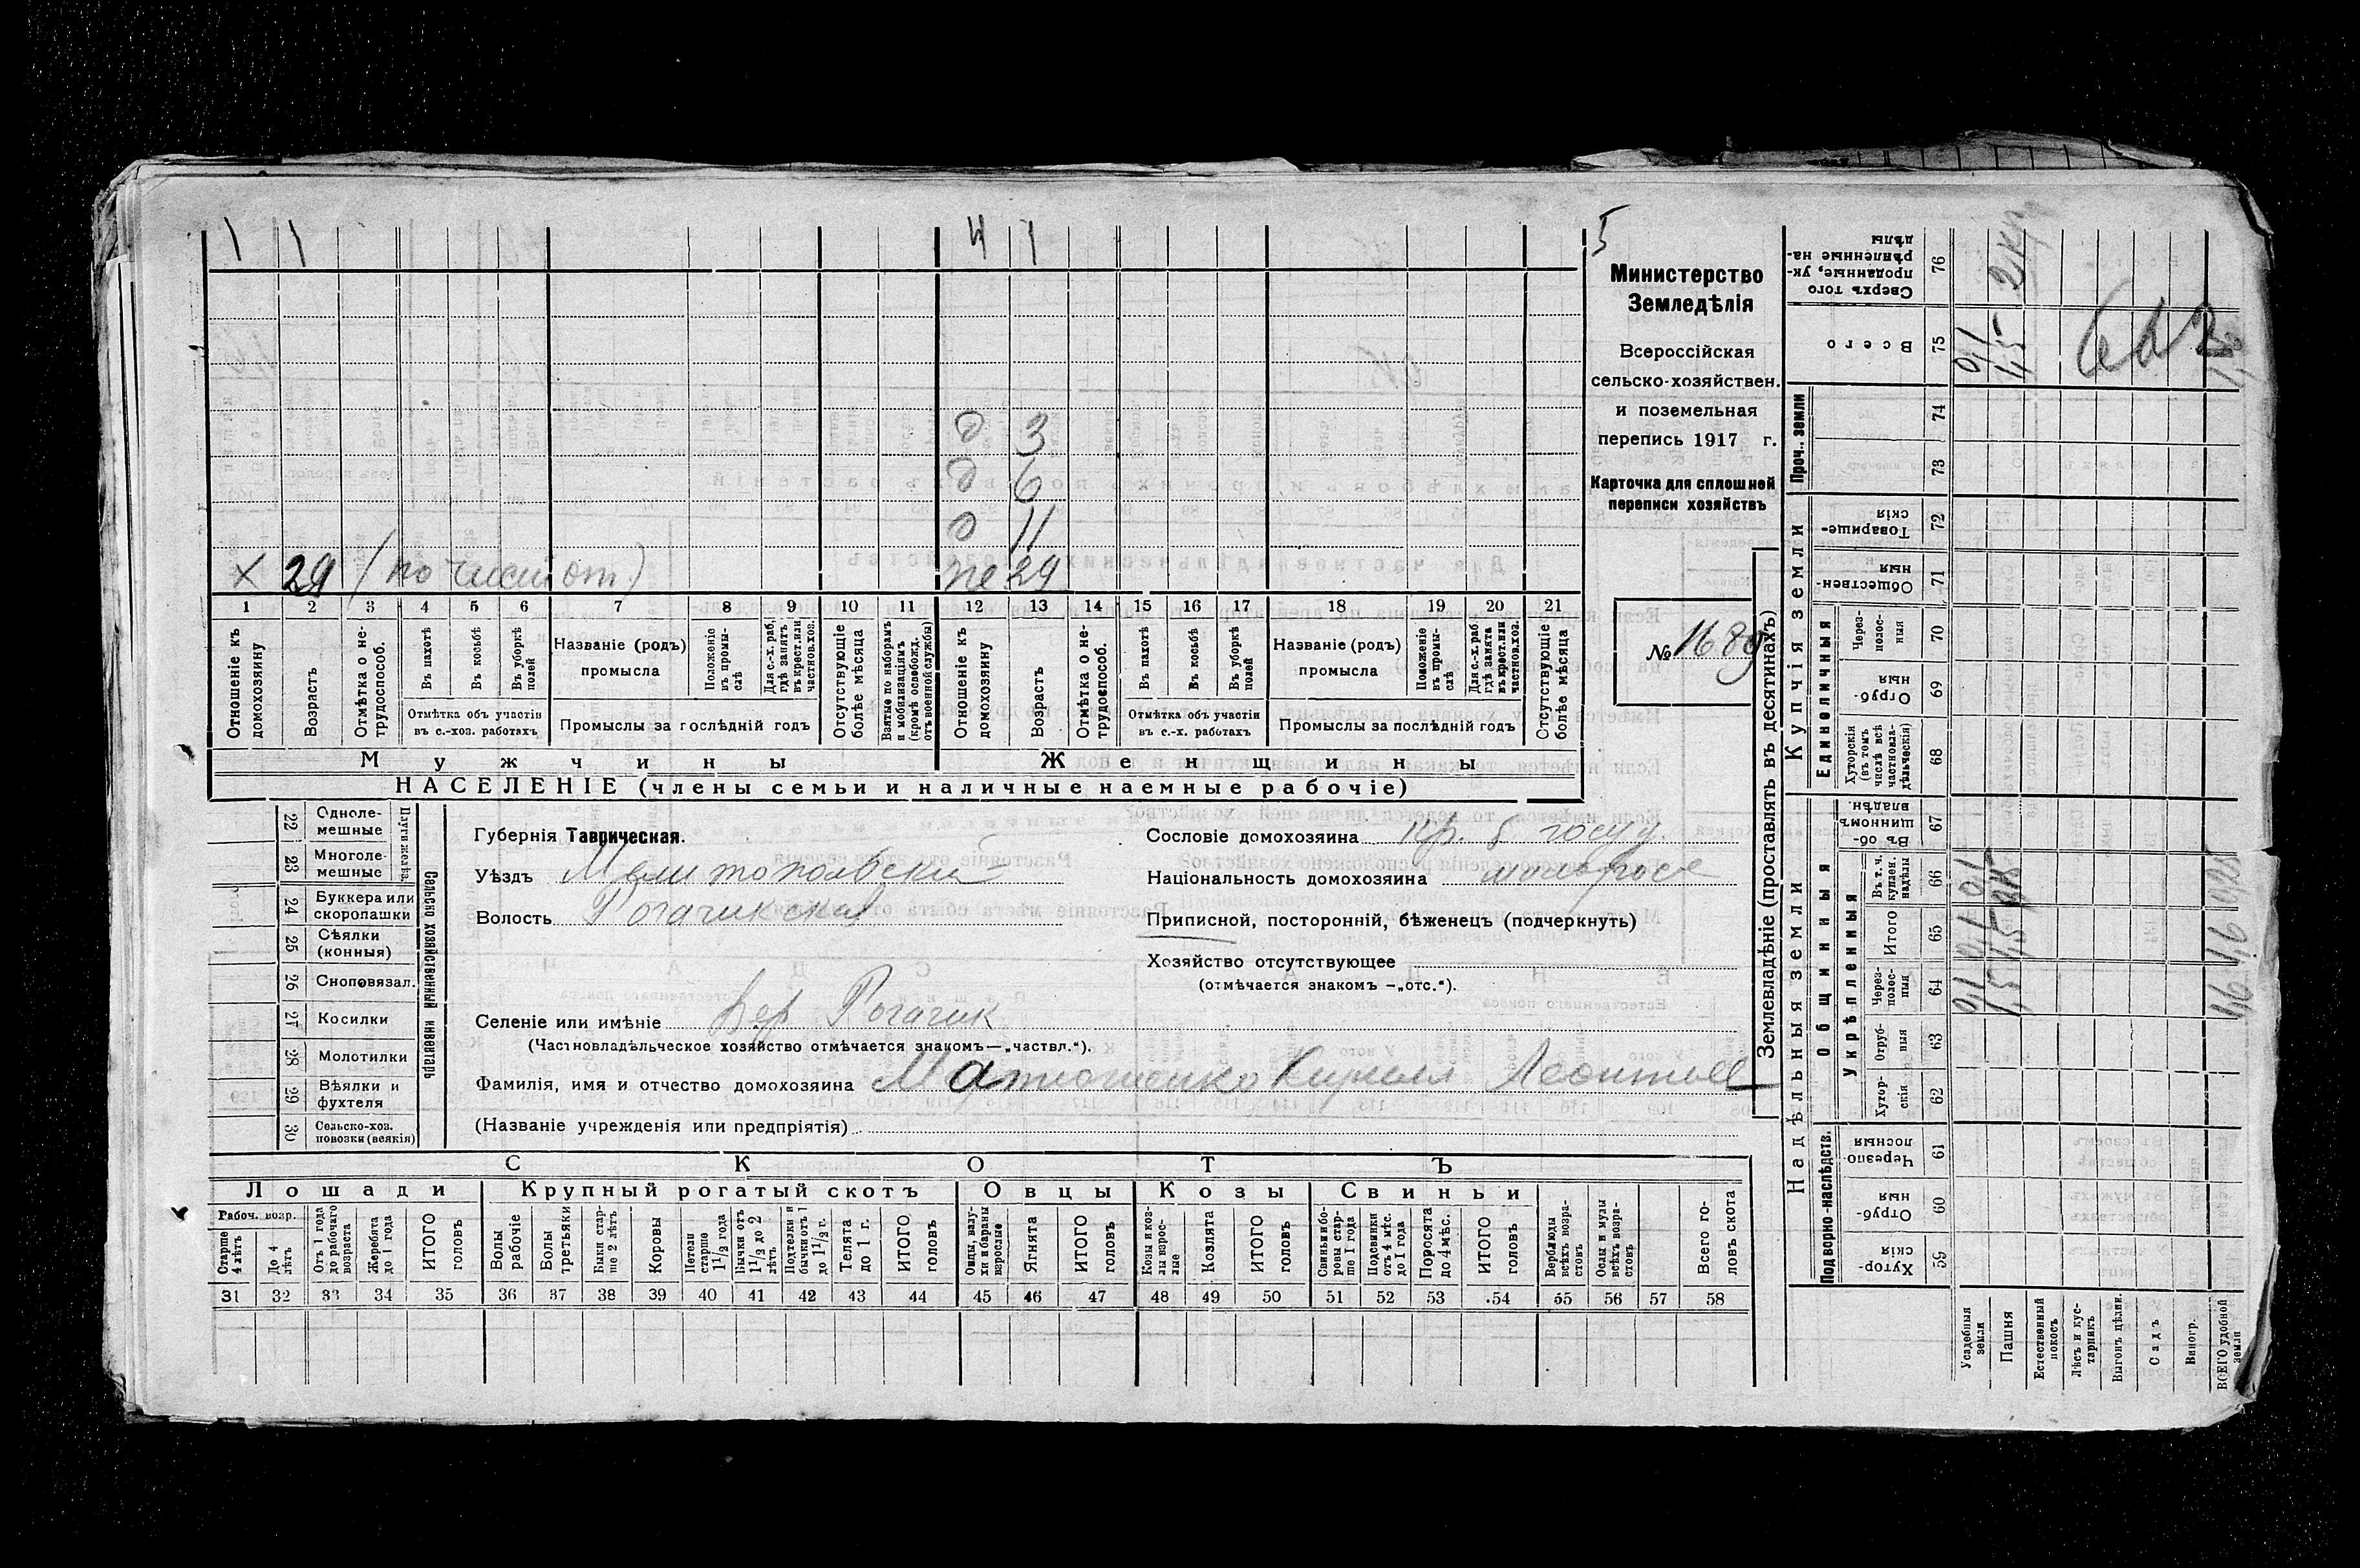 1 1 4 1 5
Министерство
Земледѣлія
Всероссійская
сельско-хозяйствен.
и поземельная
перепись 1917 г.
Карточка для сплошней
переписи хозяйствъ
№ 1689
д 3
д 6
д 11
х 29 же 29
1 2 3 4 5 6 7 8 9 10 11 12 13 14 15 16 17 18 19 20 21
Отношеніе къ домохозяину
Возрастъ
Отмѣтка о не-трудоспособ.
Въ пахотѣ
Въ косьбѣ
Въ уборкѣ полей
Отмѣтка объ участіи
въ с.-хоз. работахъ
Названіе (родъ)
промысла
Положеніе въ промы-слѣ
Для с.-х. раб. гдѣ занятъ въ крест. или частнов. хоз.
Промыслы за послѣдній годъ
Отсутствующіе болѣе мѣсяца
Взятые по наборамъ и мобилизаціямъ (кромѣ освобожд. отъ военной службы)
Отношеніе къ домохозяину
Возрастъ
Отмѣтка о не-трудоспособ.
Въ пахотѣ
Въ косьбѣ
Въ уборкѣ полей
Отмѣтка объ участіи
въ с.-х. работахъ
Названіе (родъ)
промысла
Положеніе въ промы-слѣ
Для с.-х. раб. гдѣ занята въ крест. или частнов. хоз.
Промыслы за послѣдній годъ
Отсутствующіе болѣе мѣсяца
Мужчины Женщины
НАСЕЛЕНІЕ (члены семьи и наличные наемные рабочіе)
22 Однолемешные
23 Многолемешные
Плуги желѣз.
24 Буккера или скоропашки
25 Сѣялки (конныя)
26 Сноповязал.
27 Косилки
28 Молотилки
29 Вѣялки и фухтеля
30 Сельско-хоз. повозки (всякія)
Сельско хозяйственный инвентарь
Губернія Таврическая.
Уѣздъ Мелитопольскій
Волость Рогачикская
Селеніе или имѣніе Вер Рогачик
(Частновладѣльческое хозяйство отмѣчается знакомъ—„частвл.“).
Фамилія, имя и отчество домохозяина Матюшенко Кирилл Леонтьев
(Названіе учрежденія или предпріятія)
Сословіе домохозяина кр. б. госуд.
Національность домохозяина малорос
Приписной, посторонній, бѣженецъ (подчеркнуть)
Хозяйство отсутствующее
(отмѣчается знакомъ -„отс.“).
СКОТЪ
Лошади Крупный рогатый скотъ Овцы Козы Свиньи
Рабоч. возр.
Старше 4 лѣтъ
До 4 лѣтъ
Отъ 1 года до рабочаго возраста
Жеребята до 1 года
ИТОГО головъ
Волы рабочіе
Волы третьяки
Быки стар-ше 2 лѣтъ
Коровы
Нетели старше 1 1/2 года
Бычки отъ 1 1/2 до 2 лѣтъ
Подтелки и бычки отъ 1 до 1 1/2 г.
Телята до 1 г.
ИТОГО головъ
Овцы, валу-хи и бараны взрослые
Ягнята
ИТОГО головъ
Козы и коз-лы взрос-лые
Козлята
ИТОГО головъ
Свиньи и бо-ровы стар-ше 1 года
Подсвинки отъ 4 мѣс. до 1 года
Поросята до 4 мѣс.
ИТОГО головъ
Верблюды всѣхъ возра-стовъ
Ослы и мулы всѣхъ возра-стовъ
Всего го-ловъ скота
31 32 33 34 35 36 37 38 39 40 41 42 43 44 45 46 47 48 49 50 51 52 53 54 55 56 57 58
Землевладѣніе (проставлять въ десятинахъ)
Надѣльныя земли
Купчія земли
Проч. земли
Общинныя
Укрѣпленныя
Единоличныя
Подворно-наслѣдств.
Сверхъ того проданные, ук-рѣпленные на-дѣлы 76
Всего 75
74
73
Товарище-скія 72
Обществен-ныя 71
Через-полос-ныя 70
Отруб-ныя 69
Хуторскія (въ томъ числѣ всѣ частновла-дѣльческія) 68
Въ об-щинномъ владѣн. 67
Въ т. ч. куплен. надѣлы 66
Итого 65
Через-полос-ныя 64
Отруб-ныя 63
Хутор-скія 62
Черезпо-лосныя 61
Отруб-ныя 60
Хутор-скія 59
Усадебная земля
Пашня
Естественный покосъ
Лѣсъ и кус-тарникъ
Выгонъ цѣлин.
Садъ
Виногр.
ВСЕГО удобной земли
0,1 0,1 0,1 0,1
1,5 1,5 1,5
1,6 1,6